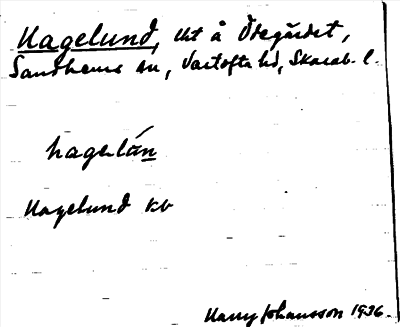 Hagelund, lht å Ödegärdet,
Sandhems sn, Vartofta hd, Skarab. l.
hagelùn
Hagelund kb
Harry Johansson 1936.